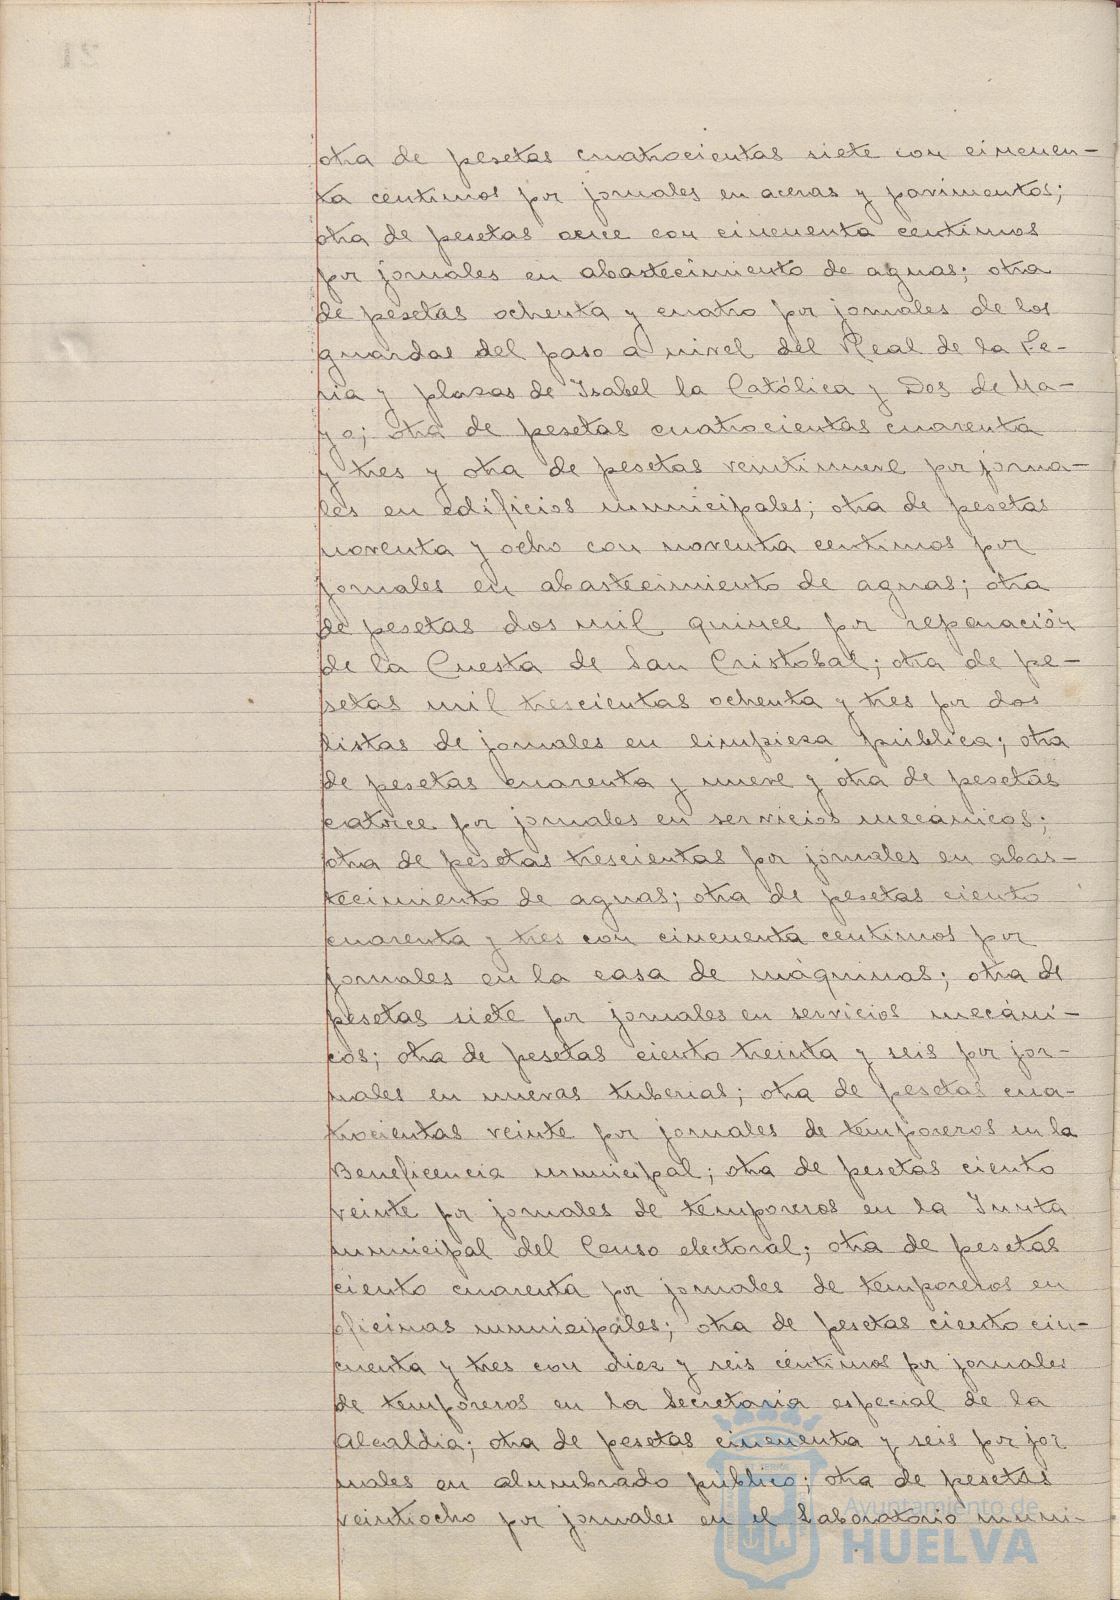 otra de pesetas cuatrocientas siete con cincuen-
ta centimos por jornales en aceras y pavimentos;
otra de pesetas once con cincuenta centimos
por jornales en abastecimiento de aguas; otra
de pesetas ochenta y cuatro por jornales de los
guardas del paso a nivel del Real de la Fe-
ria y plazas de Isabel la Católica y Dos de Ma-
yo; otra de pesetas cuatrocientas cuarenta
y tres y otra de pesetas veintinueve por jorna-
les en edificios municipales; otra de pesetas
noventa y ocho con noventa centimos por
jornales en abastecimiento de aguas; otra
de pesetas dos mil quince por reparación
de la Cuesta de San Cristobal; otra de pe-
setas mil trescientas ochenta y tres por dos
listas de jornales en limpieza pública; otra
de pesetas cuarenta y nueve y otra de pesetas
catorce por jornales en servicios mecánicos;
otra de pesetas trescientas por jornales en abas-
tecimiento de aguas; otra de pesetas ciento
cuarenta y tres con cincuenta centimos por
jornales en la casa de máquinas; otra de
pesetas siete por jornales en servicios mecáni-
cos; otra de pesetas ciento treinta y seis por jor-
nales en nuevas tuberias; otra de pesetas cua-
trocientas veinte por jornales de temporeros en la
Beneficencia municipal; otra de pesetas ciento
veinte por jornales de temporeros en la Junta
municipal del Censo electoral; otra de pesetas
ciento cuarenta por jornales de temporeros en
oficinas municipales; otra de pesetas ciento cin-
cuenta y tres con diez y seis céntimos por jornales
de temporeros en la Secretaria especial de la
Alcaldia; otra de pesetas cincuenta y seis por jor
nales en alumbrado público; otra de pesetas
veintiocho por jornales en el Laboratorio muni-
Ayuntamiento de
HUELVA